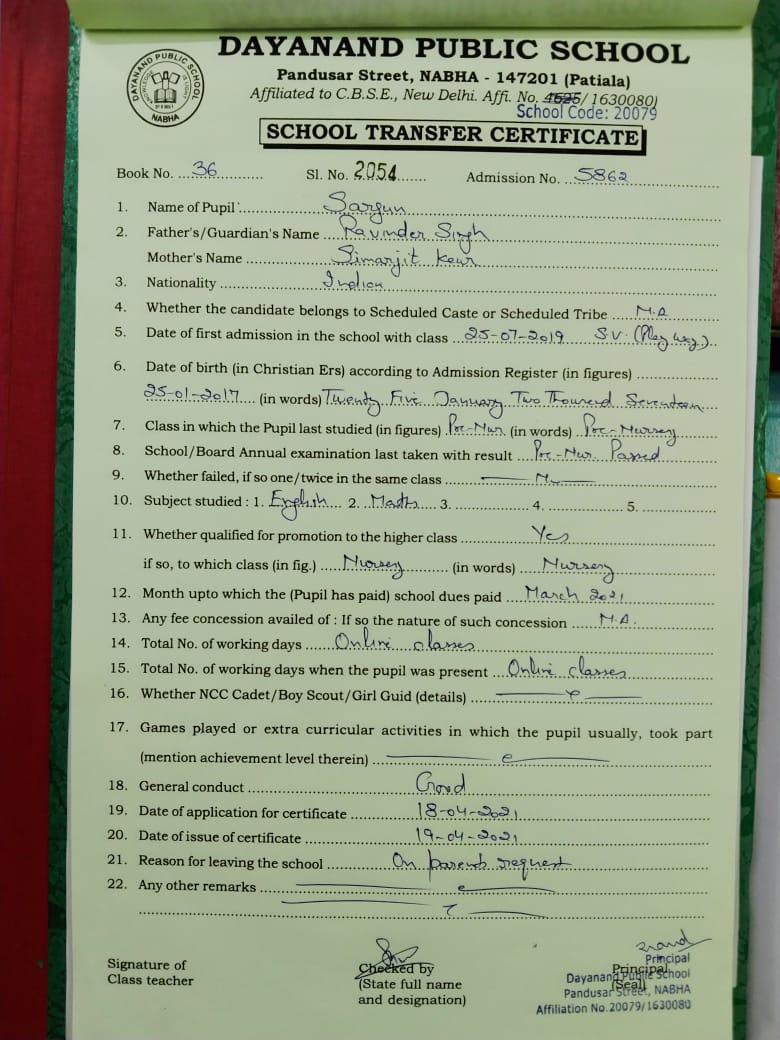 DAYANAND PUBLIC SCHOOL
DAYANAND PUBLIC SCHOOL
NABHA
Pandusar Street, NABHA - 147201 (Patiala)
Affiliated to C.B.S.E., New Delhi. Affi. No. 4625/1630080)
School Code: 20079
SCHOOL TRANSFER CERTIFICATE
Book No. 36 Sl. No. 2054 Admission No. 5862
1. Name of Pupil : Sargun
2. Father's/Guardian's Name Ravinder Singh
Mother's Name Simarjit Kaur
3. Nationality Indian
4. Whether the candidate belongs to Scheduled Caste or Scheduled Tribe N.A
5. Date of first admission in the school with class 25-07-2019 S.V. (Play way)
6. Date of birth (in Christian Ers) according to Admission Register (in figures)
25-01-2017 (in words) Twenty Five January Two Thousand Seventeen
7. Class in which the Pupil last studied (in figures) Pre-Nur. (in words) Pre-Nursery
8. School/Board Annual examination last taken with result Pre-Nur. Passed
9. Whether failed, if so one/twice in the same class
10. Subject studied : 1. English 2. Maths 3. 4. 5.
11. Whether qualified for promotion to the higher class Yes
if so, to which class (in fig.) Nursery (in words) Nursery
12. Month upto which the (Pupil has paid) school dues paid March 2021
13. Any fee concession availed of : If so the nature of such concession N.A.
14. Total No. of working days Online classes
15. Total No. of working days when the pupil was present Online classes
16. Whether NCC Cadet/Boy Scout/Girl Guid (details)
17. Games played or extra curricular activities in which the pupil usually, took part
(mention achievement level therein)
18. General conduct Good
19. Date of application for certificate 18-04-2021
20. Date of issue of certificate 19-04-2021
21. Reason for leaving the school On parents request
22. Any other remarks
Signature of
Class teacher
Checked by
(State full name
and designation)
Principal
(Seal)
Principal
Dayanand Public School
Pandusar Street, NABHA
Affiliation No.20079/1630080